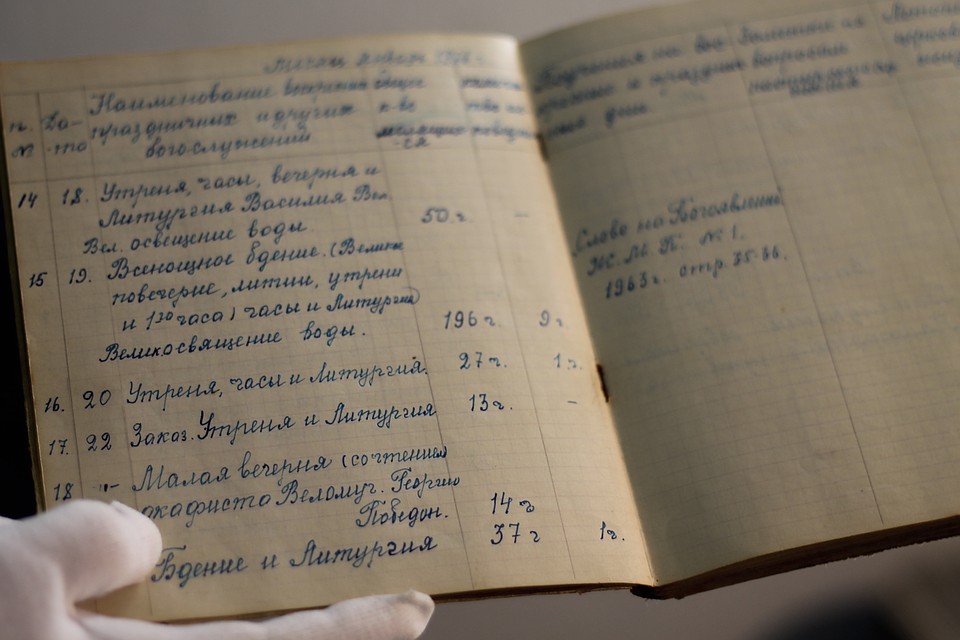 Месяц Январь
п.
№
Да-
-та
Наименование
праздничных и других
богослужений
молящихся
-ся
14 18. Утреня, часы, вечерня и
Литургия Василия Вел.
Вел. освещение воды. 50 г. –
15 19. Всенощное бдение. (Велик
повечерие, литии, утрени
и 1эо часа) часы и Литургия
Великосвящение воды. 196 г. 9 г.
16. 20 Утреня, часы и Литургия. 27 г. 1 г.
17. 22 Заказ. Утреня и Литургия 13 г. –
18 -"- Малая вечерня (со чтением
акафиста Великомуч. Георгию
Победон. 14 г
Бдение и Литургия 37 г 1 г.
Поучения на вос-
и праздни
дни
Слово на Богоявление
Ж. М. П. № 1.
1963 г. стр. 35-36.